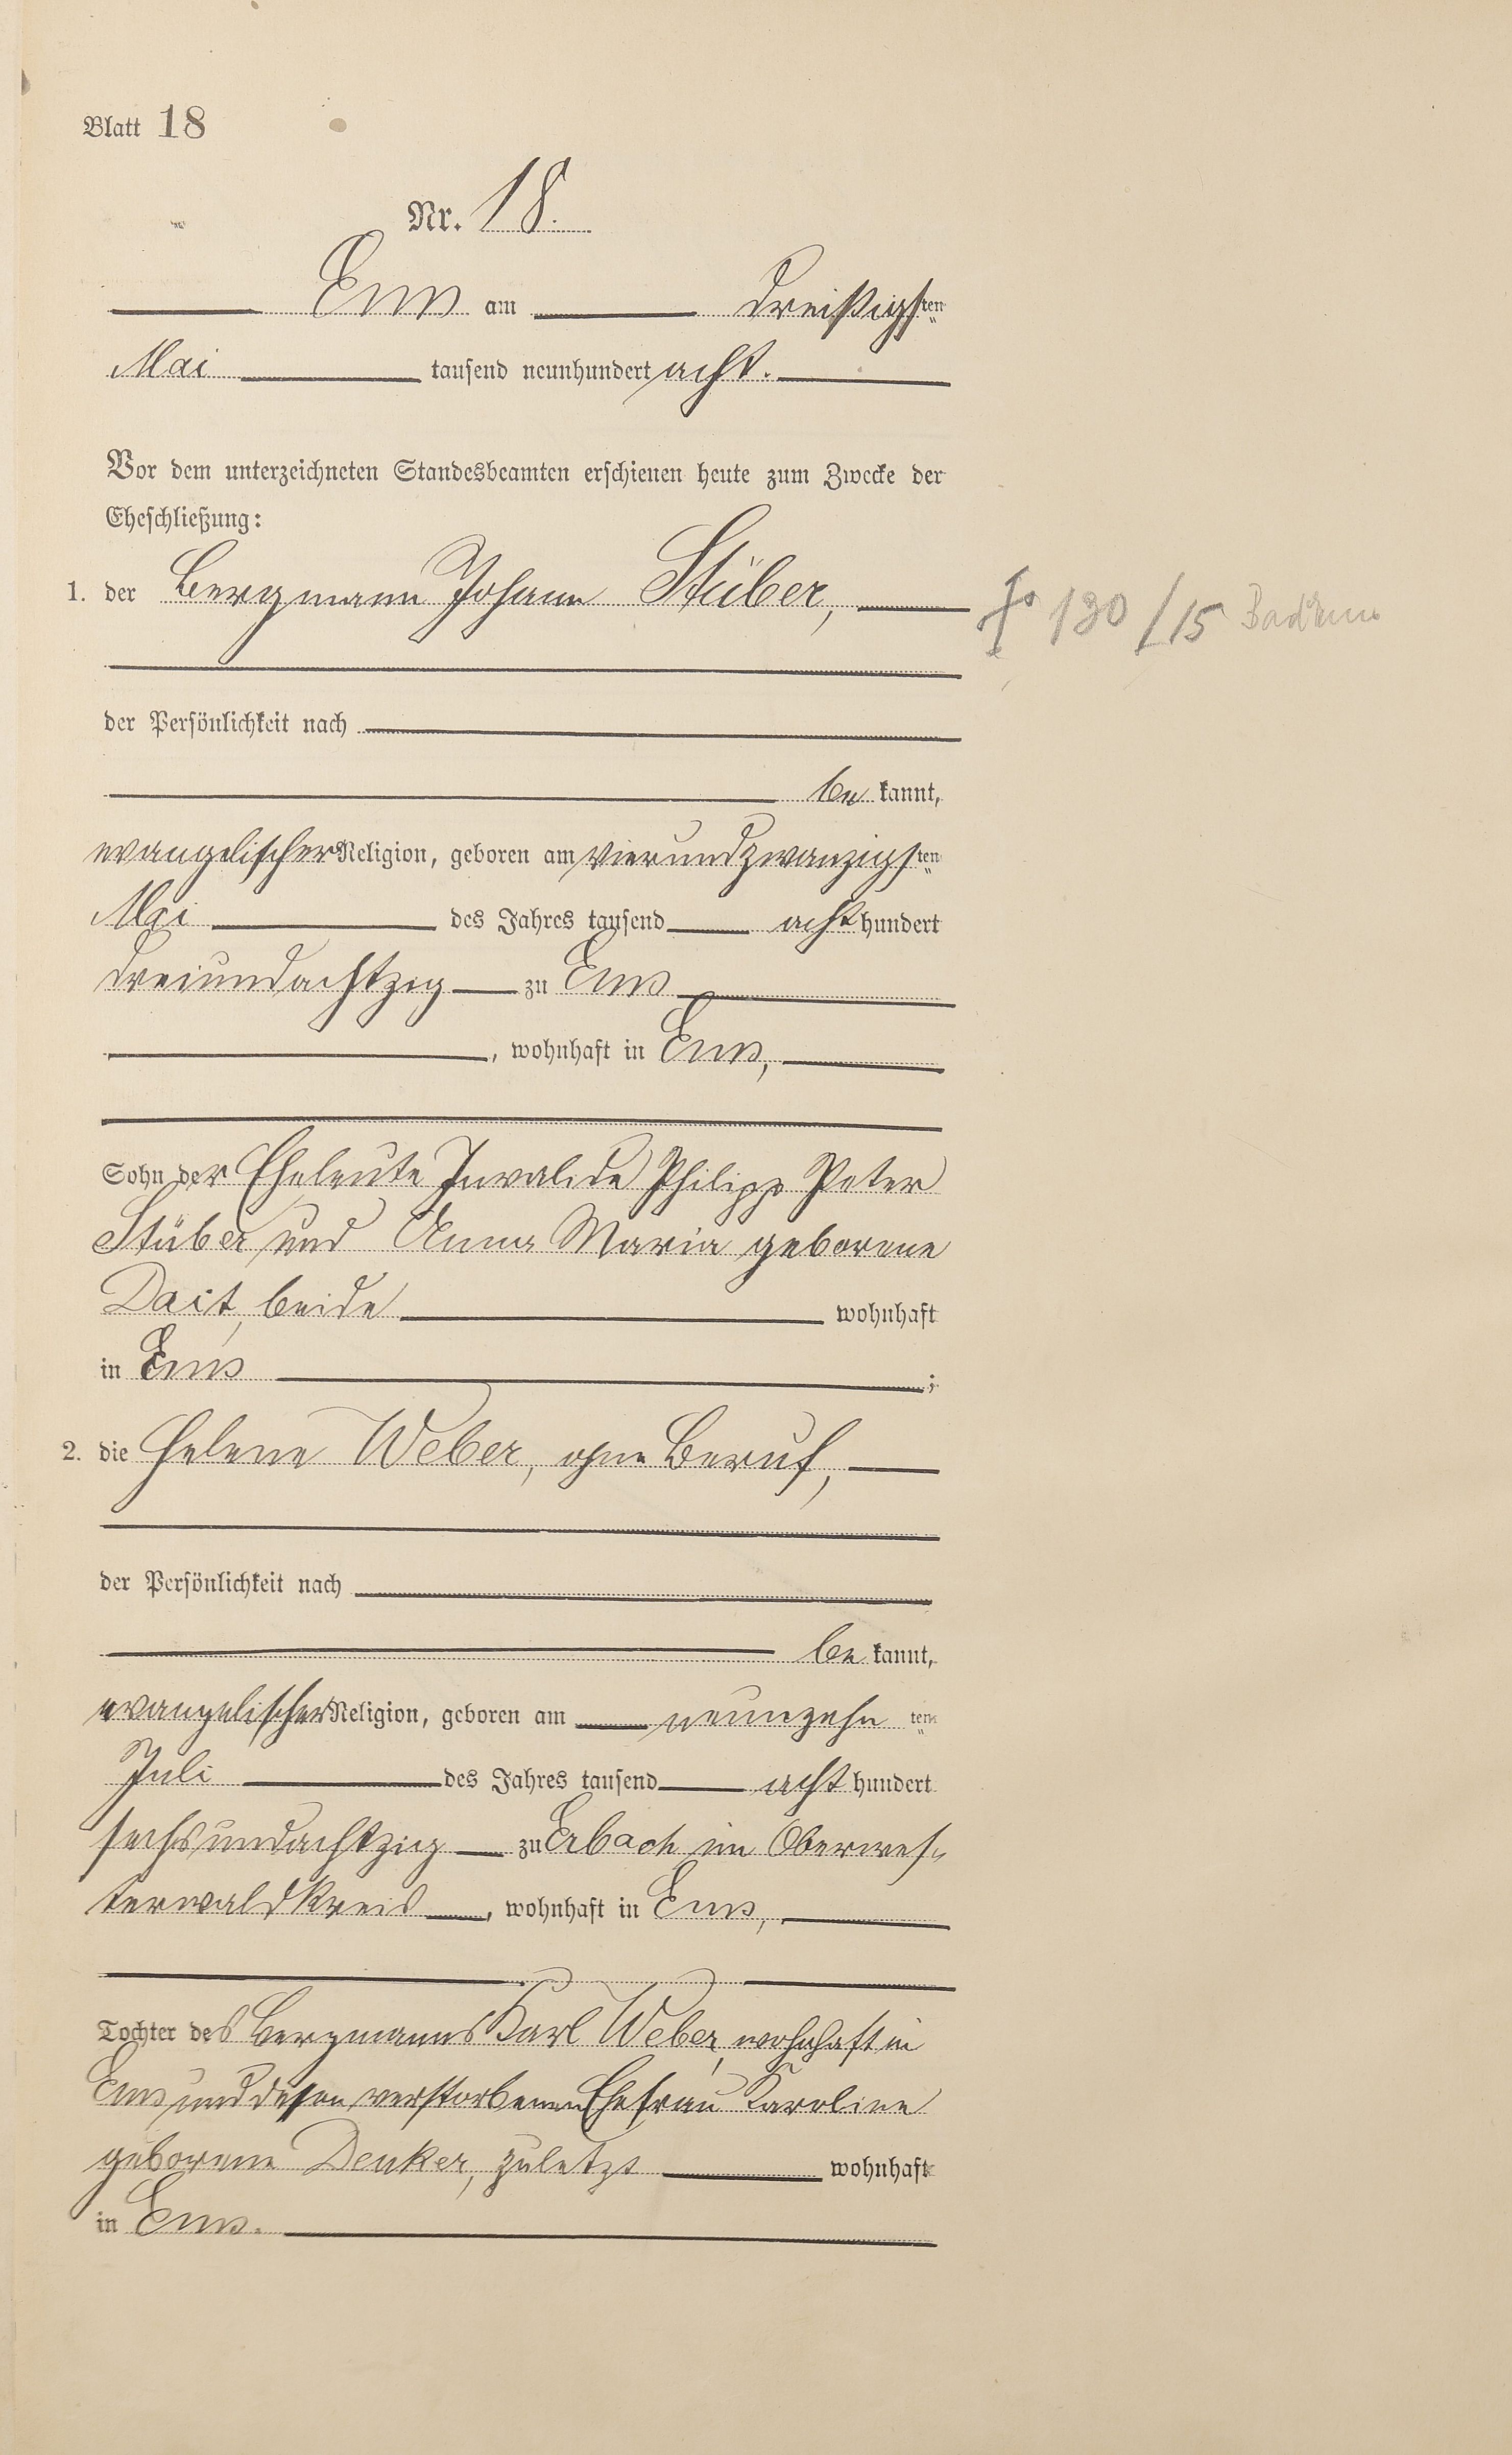 Blatt 18
Nr. 18.
Ems am dreißigsten
Mai tausend neunhundert acht.
Vor dem unterzeichneten Standesbeamten erschienen heute zum Zwecke der
Eheschließung:
1. der Bergmann Johann Stüber,
† 130/15
der Persönlichkeit nach
be kannt,
evangelischer Religion, geboren am vierundzwanzigsten
Mai des Jahres tausend acht hundert
dreiundachtzig zu Ems
, wohnhaft in Ems,
Sohn der Eheleute Invalide Philipp Peter
Stüber und Anna Maria geborene
Dait, beide wohnhaft
in Ems ;
2. die Helene Weber, ohne Beruf,
der Persönlichkeit nach
be kannt,
evangelischer Religion, geboren am neunzehn ten
Juli des Jahres tausend acht hundert
sechsundachtzig zu Erbach im Oberwes-
terwaldkreis , wohnhaft in Ems,
Tochter des Bergmanns Karl Weber, wohnhaft in
Ems und dessen verstorbenen Ehefrau Karoline
geborene Denker, zuletzt wohnhaft
in Ems.